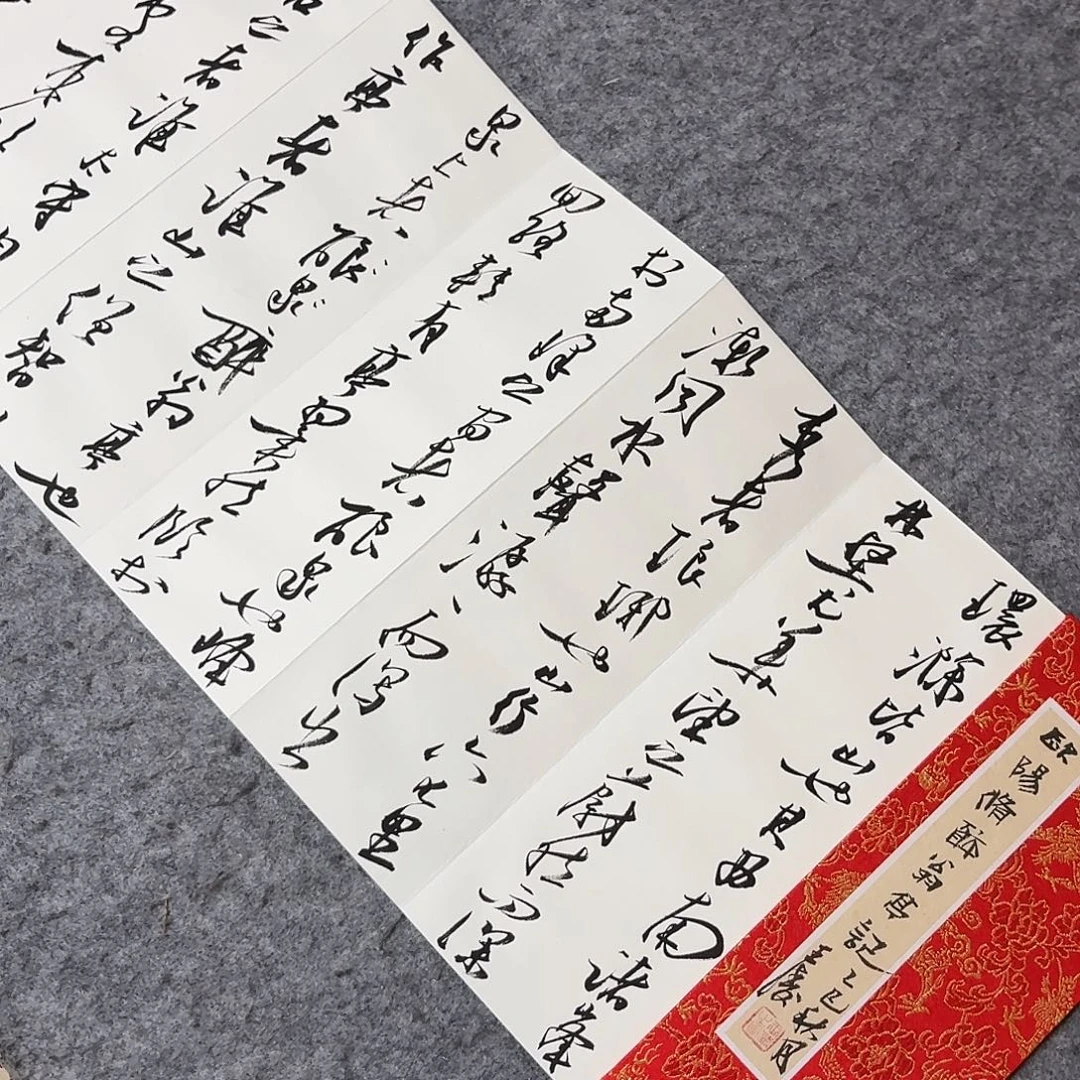 歐陽脩醉翁亭記
乙巳秋月
環滁皆山也其西南諸峯
林壑尤美望之蔚然而深
秀者琅琊也山行六七里
漸聞水聲潺〻而瀉出
於兩峰之間者釀泉也峰
回路轉有亭翼然臨於
泉上者釀泉醉翁亭也
作亭者誰山之僧智
名之者誰太守自